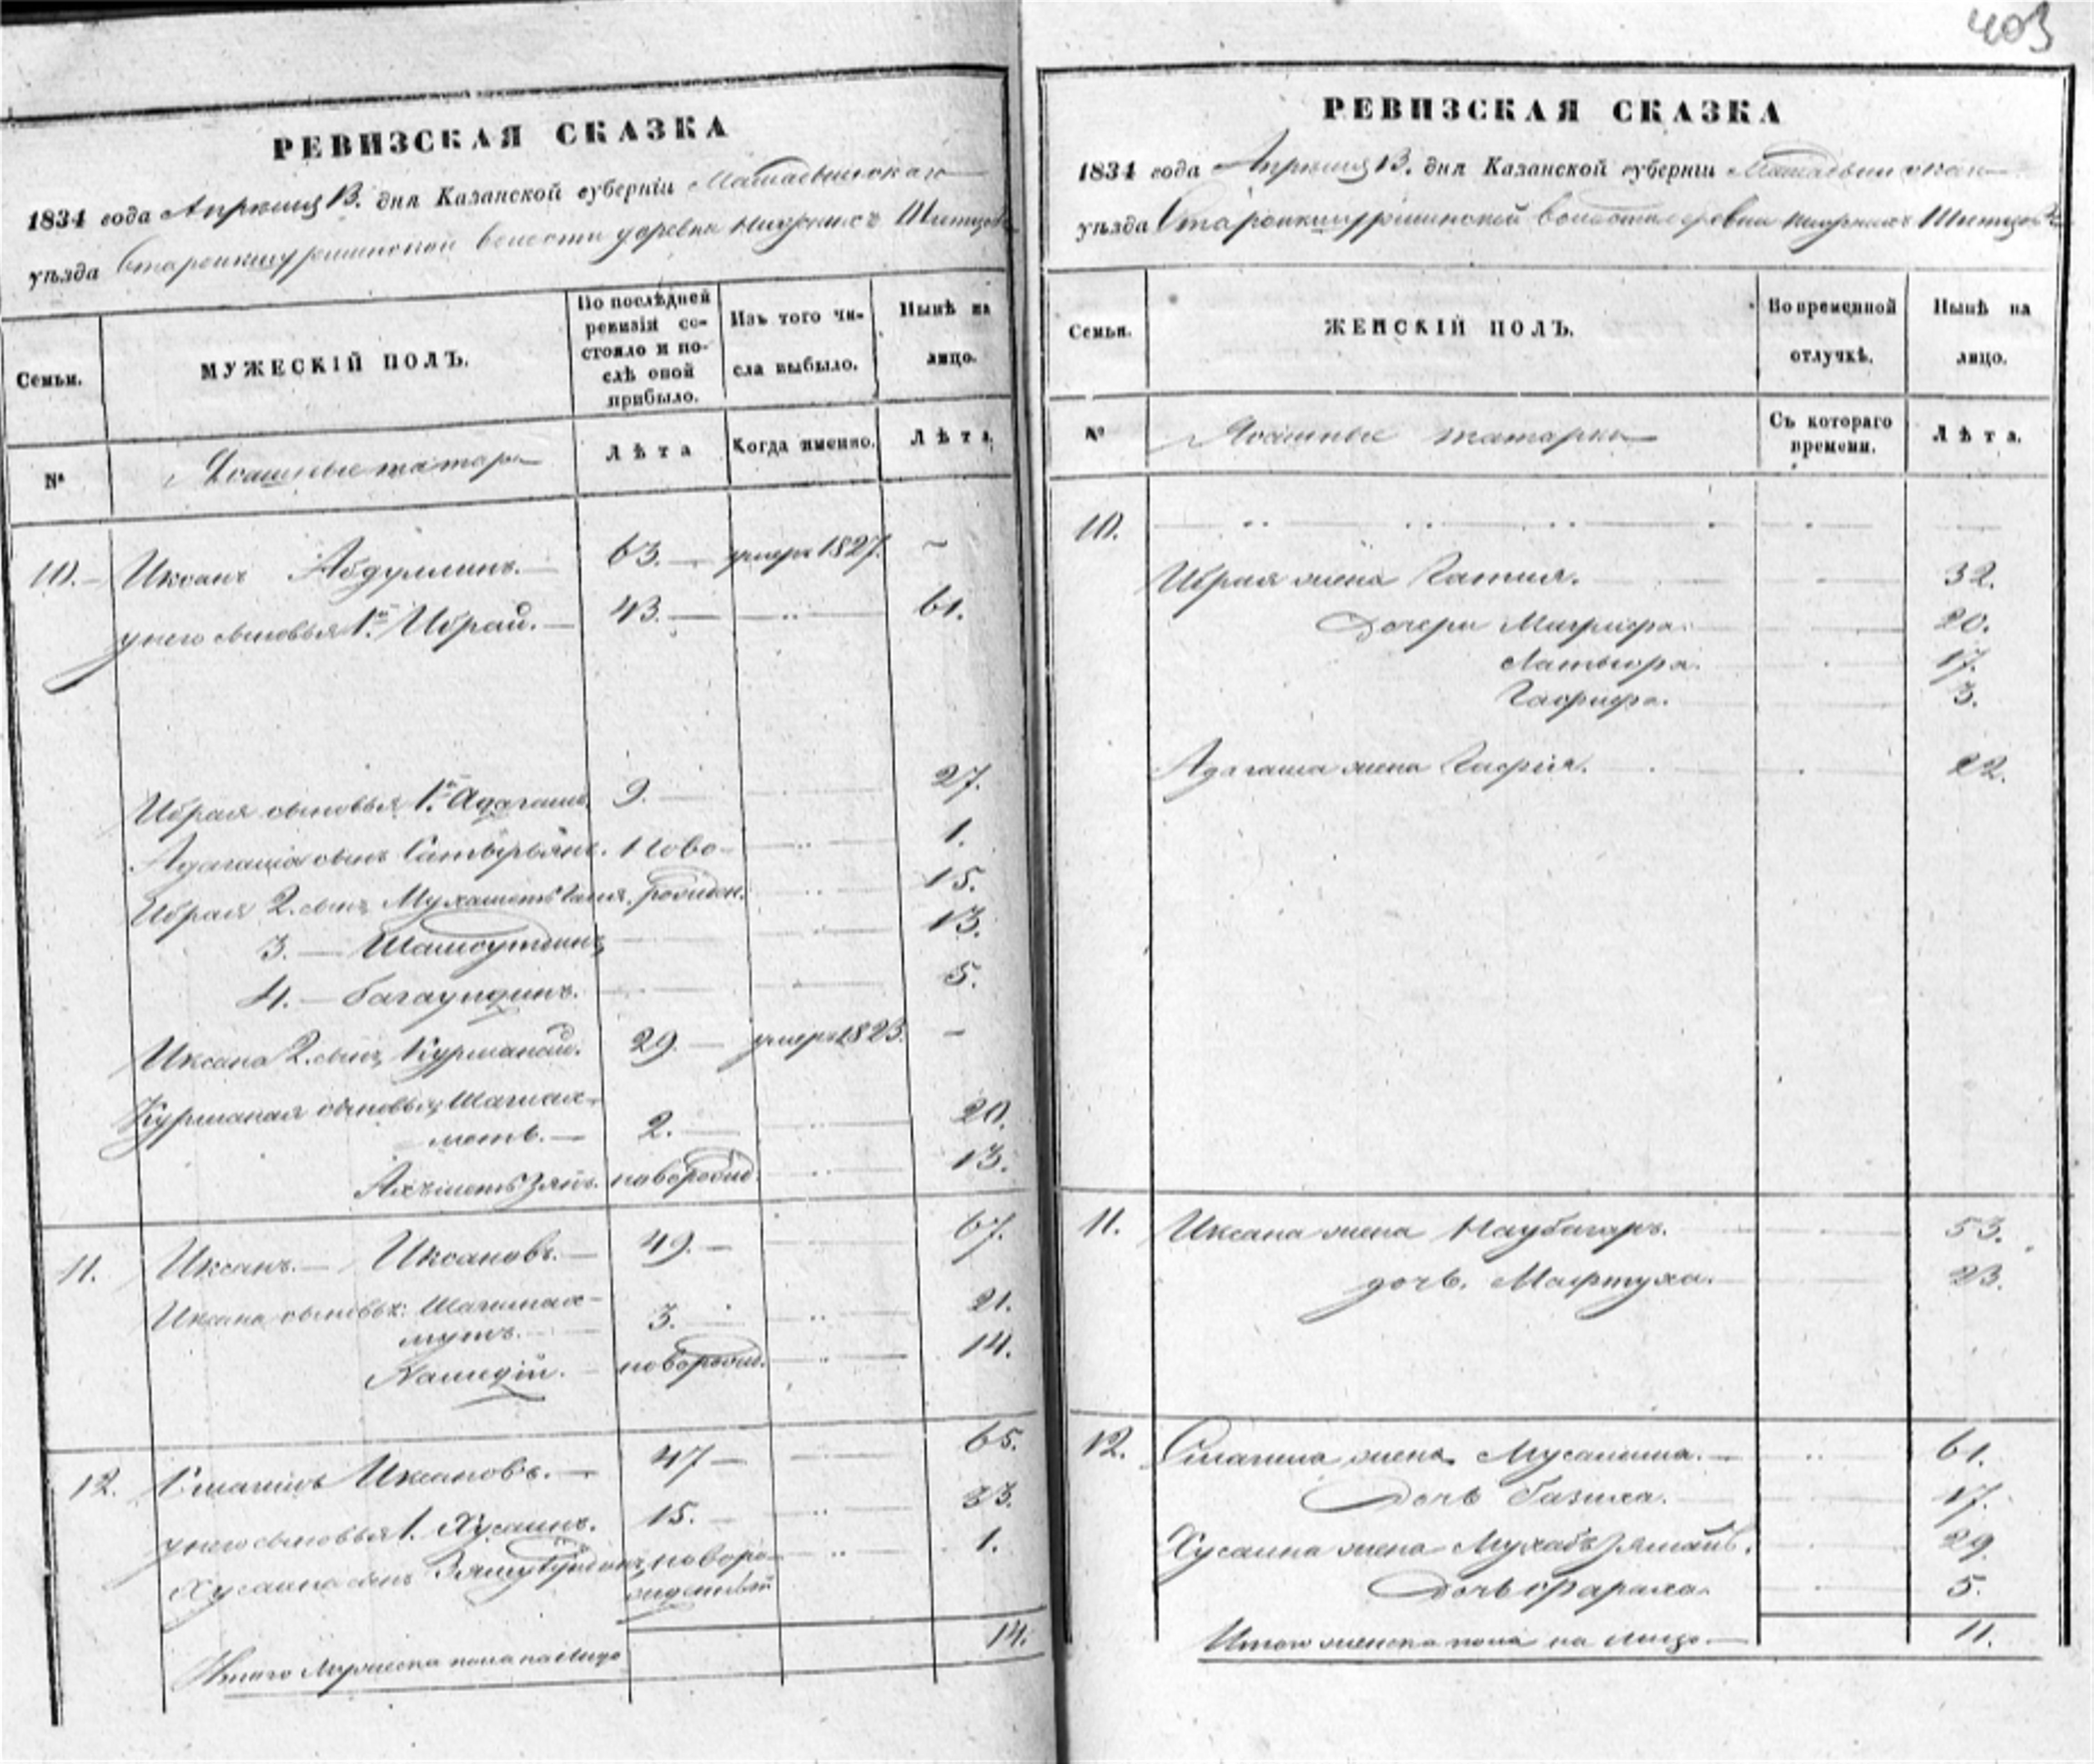 403
РЕВИЗСКАЯ СКАЗКА
1834 года Апреля 13. дня Казанской губерніи Мамадышскаго
уѣзда волости деревни Нижнихъ
Семьи.
МУЖЕСКІЙ ПОЛЪ.
По послѣдней ревизіи состояло и послѣ оной прибыло.
Изъ того числа выбыло.
Нынѣ на лицо.
№
Ясашные татара
Лѣта
Когда именно.
Лѣта
10. Иксанъ Абдуллинъ. 63. умеръ 1827. —
у него сыновья 1й Ибрай. 43. 61.
Ибрая сыновья 1й Адагамъ 9. 27.
Адагама сынъ Ново- 1.
Ибрая 2. сынъ рожден. 15.
3. — Шамсутдинъ 13.
4. — Багаутдинъ. 5.
Иксана 2. сынъ Курманай. 29. умеръ 1823. —
Курманая сыновья Шагиах-
метъ. 2. 20.
Ахъметь Зянъ. новорожд. 13.
11. Иксанъ. Иксановъ. 49. 67.
Иксана сыновья: Шагимах-
мутъ. 3. 21.
новорожд. 14.
12. Смагилъ Иксановъ. 47 65.
у него сыновья 1. Хусаинъ. 15. 33.
Хусаина сынъ новоро- 1.
жденный
Итого Мужеска пола на лицо 14.
РЕВИЗСКАЯ СКАЗКА
1834 года Апреля 13. дня Казанской губерніи Мамадышскаго
уѣзда волости деревни Нижнихъ
Семьи.
ЖЕНСКІЙ ПОЛЪ.
Во временной отлучкѣ.
Нынѣ на лицо.
№
Ясашные татарки
Съ котораго времени.
Лѣта.
10.
Ибрая жена 32.
Дочери Магрифа. 20.
17.
Гафифа. 3.
Адагама жена 22.
11. Иксана жена Наубагаръ. 53.
дочь. Мафтуха. 23.
12. Смагила жена 61.
Дочь Газиха. 17.
Хусаина жена 29.
Дочь Фараха. 5.
Итого женска пола на лицо 11.